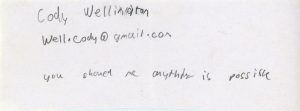 Cody Wellington
Well.cody@gmail.con
you showed me anything is possible